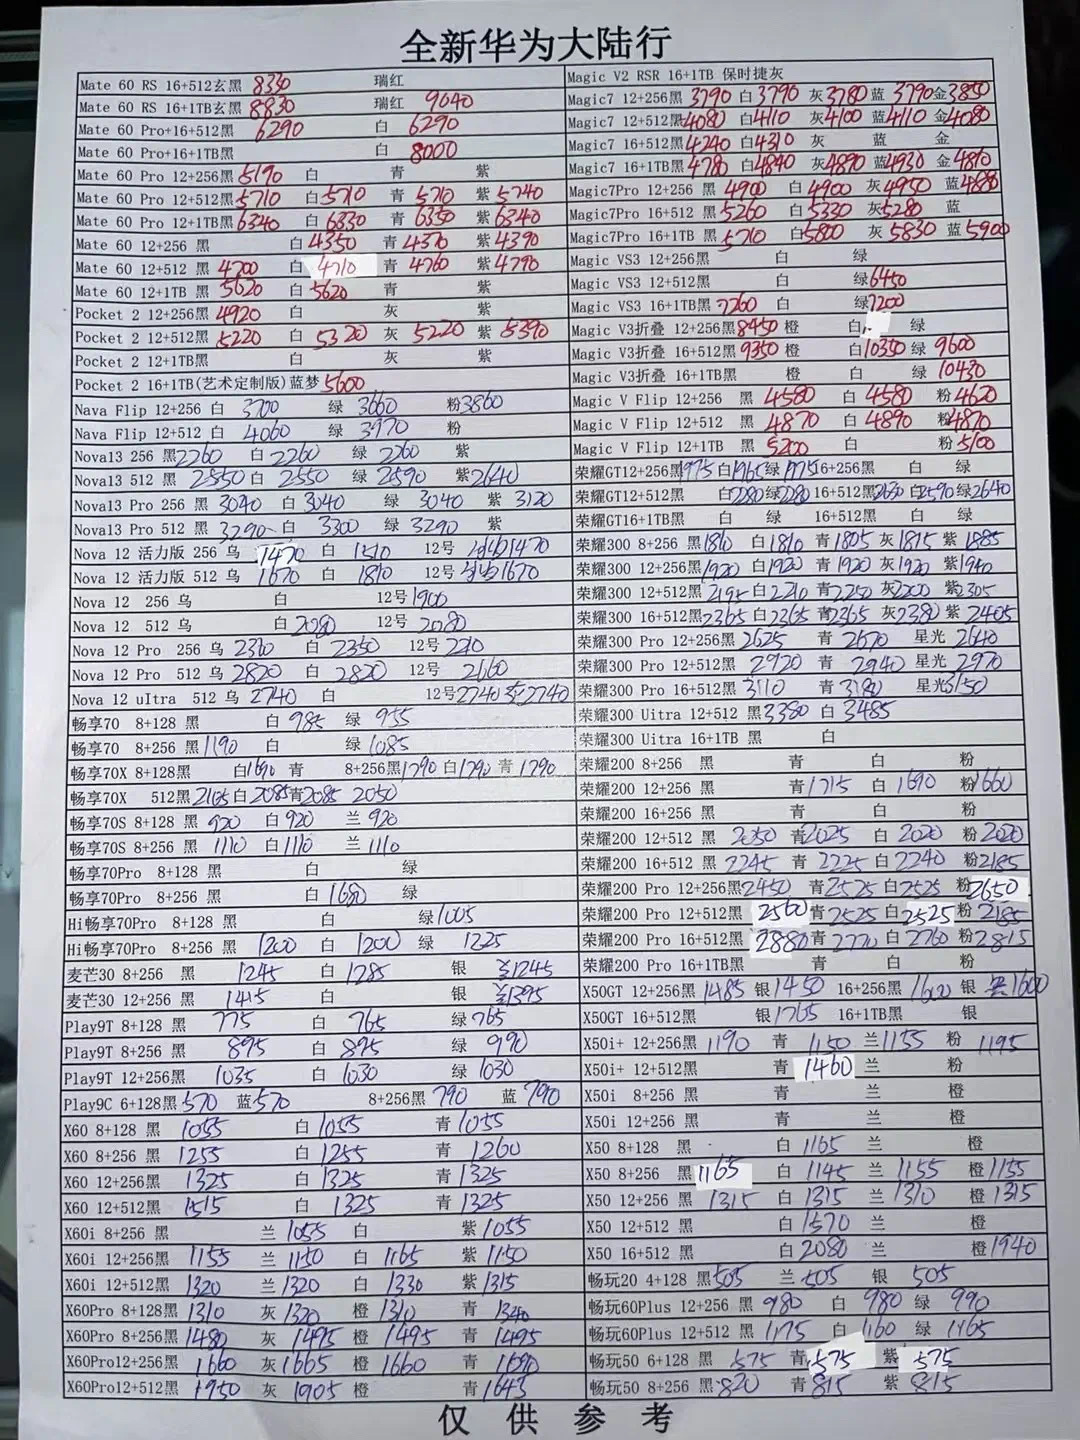 全新华为大陆行
Mate 60 RS 16+512玄黑 8330 瑞红
Mate 60 RS 16+1TB玄黑 8830 瑞红 9640
Mate 60 Pro+16+512黑 6290 白 6290
Mate 60 Pro+16+1TB黑 白 8000
Mate 60 Pro 12+256黑 5190 白 青 紫
Mate 60 Pro 12+512黑 5710 白 5710 青 5710 紫 5740
Mate 60 Pro 12+1TB黑 6340 白 6330 青 6350 紫 6340
Mate 60 12+256 黑 白 4350 青 4370 紫 4390
Mate 60 12+512 黑 4700 白 4710 青 4760 紫 4790
Mate 60 12+1TB 黑 5620 白 5620 青 紫
Pocket 2 12+256黑 4920 白 灰 紫
Pocket 2 12+512黑 5220 白 5320 灰 5220 紫 5390
Pocket 2 12+1TB黑 白 灰 紫
Pocket 2 16+1TB(艺术定制版)蓝梦 5600
Nava Flip 12+256 白 3700 绿 3660 粉 3860
Nava Flip 12+512 白 4060 绿 3970 粉
Nova13 256 黑 2260 白 2260 绿 2260 紫
Nova13 512 黑 2550 白 2550 绿 2590 紫 2640
Nova13 Pro 256 黑 3040 白 3040 绿 3040 紫 3120
Nova13 Pro 512 黑 3290 白 3300 绿 3290 紫
Nova 12 活力版 256 乌 1470 白 1510 12号 1470
Nova 12 活力版 512 乌 1670 白 1810 12号 1670
Nova 12 256 乌 白 12号 1900
Nova 12 512 乌 白 2080 12号 2080
Nova 12 Pro 256 乌 2360 白 2350 12号 2210
Nova 12 Pro 512 乌 2820 白 2820 12号 2660
Nova 12 uItra 512 乌 2740 白 12号 2740 2740
畅享70 8+128 黑 白 985 绿 955
畅享70 8+256 黑 1190 白 绿 1085
畅享70X 8+128黑 白 1690 青 8+256黑 1790 白 1790 青 1790
畅享70X 512黑 2105 白 2085 青 2085 2050
畅享70S 8+128 黑 920 白 920 兰 920
畅享70S 8+256 黑 1110 白 1110 兰 1110
畅享70Pro 8+128 黑 白 绿
畅享70Pro 8+256 黑 白 1680 绿
Hi畅享70Pro 8+128 黑 白 绿 1005
Hi畅享70Pro 8+256 黑 1200 白 1200 绿 1225
麦芒30 8+256 黑 1245 白 1285 银 1245
麦芒30 12+256 黑 1415 白 银 1395
Play9T 8+128 黑 775 白 765 绿 765
Play9T 8+256 黑 895 白 895 绿 990
Play9T 12+256黑 1035 白 1030 绿 1030
Play9C 6+128黑 570 蓝 570 8+256黑 790 蓝 790
X60 8+128 黑 1055 白 1055 青 1055
X60 8+256 黑 1255 白 1255 青 1260
X60 12+256黑 1325 白 1325 青 1325
X60 12+512黑 1515 白 1325 青 1325
X60i 8+256 黑 兰 1055 白 紫 1055
X60i 12+256黑 1155 兰 1150 白 1165 紫 1150
X60i 12+512黑 1320 兰 1320 白 1330 紫 1315
X60Pro 8+128黑 1310 灰 1320 橙 1310 青 1340
X60Pro 8+256黑 1480 灰 1495 橙 1495 青 1495
X60Pro12+256黑 1660 灰 1665 橙 1660 青 1690
X60Pro12+512黑 1950 灰 1905 橙 青 1645
Magic V2 RSR 16+1TB 保时捷灰
Magic7 12+256黑 3790 白 3790 灰 3780 蓝 3790 金 3850
Magic7 12+512黑 4080 白 4110 灰 4100 蓝 4110 金 4080
Magic7 16+512黑 4240 白 4310 灰 蓝 金
Magic7 16+1TB黑 4780 白 4840 灰 4890 蓝 4930 金 4810
Magic7Pro 12+256 黑 4900 白 4900 灰 4950 蓝 4880
Magic7Pro 16+512 黑 5260 白 5330 灰 5280 蓝
Magic7Pro 16+1TB 黑 5710 白 5800 灰 5830 蓝 5900
Magic VS3 12+256黑 白 绿
Magic VS3 12+512黑 白 绿 6450
Magic VS3 16+1TB黑 7260 白 绿 7200
Magic V3折叠 12+256黑 8450 橙 白 绿
Magic V3折叠 16+512黑 9350 橙 白 10350 绿 9600
Magic V3折叠 16+1TB黑 橙 白 绿 10430
Magic V Flip 12+256 黑 4580 白 4580 粉 4620
Magic V Flip 12+512 黑 4870 白 4890 粉 4870
Magic V Flip 12+1TB 黑 5200 白 粉 5100
荣耀GT12+256黑 1975 白 1965 绿 1975 16+256黑 白 绿
荣耀GT12+512黑 白 2280 绿 2280 16+512黑 2630 白 2590 绿 2640
荣耀GT16+1TB黑 白 绿 16+512黑 白 绿
荣耀300 8+256 黑 1810 白 1810 青 1805 灰 1815 紫 1885
荣耀300 12+256黑 1920 白 1920 青 1920 灰 1920 紫 1940
荣耀300 12+512黑 2195 白 2210 青 2250 灰 2200 紫 2305
荣耀300 16+512黑 2365 白 2365 青 2365 灰 2380 紫 2405
荣耀300 Pro 12+256黑 2625 青 2670 星光 2640
荣耀300 Pro 12+512黑 2920 青 2940 星光 2970
荣耀300 Pro 16+512黑 3110 青 3180 星光 3150
荣耀300 Uitra 12+512 黑 3380 白 3485
荣耀300 Uitra 16+1TB 黑 白
荣耀200 8+256 黑 青 白 粉
荣耀200 12+256 黑 青 1715 白 1690 粉 1660
荣耀200 16+256 黑 青 白 粉
荣耀200 12+512 黑 2050 青 2025 白 2020 粉 2020
荣耀200 16+512 黑 2245 青 2225 白 2240 粉 2185
荣耀200 Pro 12+256黑 2450 青 2525 白 2525 粉 2650
荣耀200 Pro 12+512黑 2560 青 2525 白 2525 粉 2185
荣耀200 Pro 16+512黑 2880 青 2770 白 2760 粉 2815
荣耀200 Pro 16+1TB黑 青 白 粉
X50GT 12+256黑 1485 银 1450 16+256黑 1600 银 1600
X50GT 16+512黑 银 1765 16+1TB黑 银
X50i+ 12+256黑 1190 青 1150 兰 1155 粉 1195
X50i+ 12+512黑 青 1460 兰 粉
X50i 8+256 黑 青 兰 橙
X50i 12+256 黑 青 兰 橙
X50 8+128 黑 白 1165 兰 橙
X50 8+256 黑 1165 白 1145 兰 1155 橙 1155
X50 12+256 黑 1315 白 1315 兰 1310 橙 1315
X50 12+512 黑 白 1570 兰 橙
X50 16+512 黑 白 2080 兰 橙 1940
畅玩20 4+128 黑 505 兰 505 银 505
畅玩60Plus 12+256 黑 980 白 980 绿 990
畅玩60Plus 12+512 黑 1175 白 1160 绿 1165
畅玩50 6+128 黑 575 青 575 紫 575
畅玩50 8+256 黑 820 青 815 紫 815
仅供参考